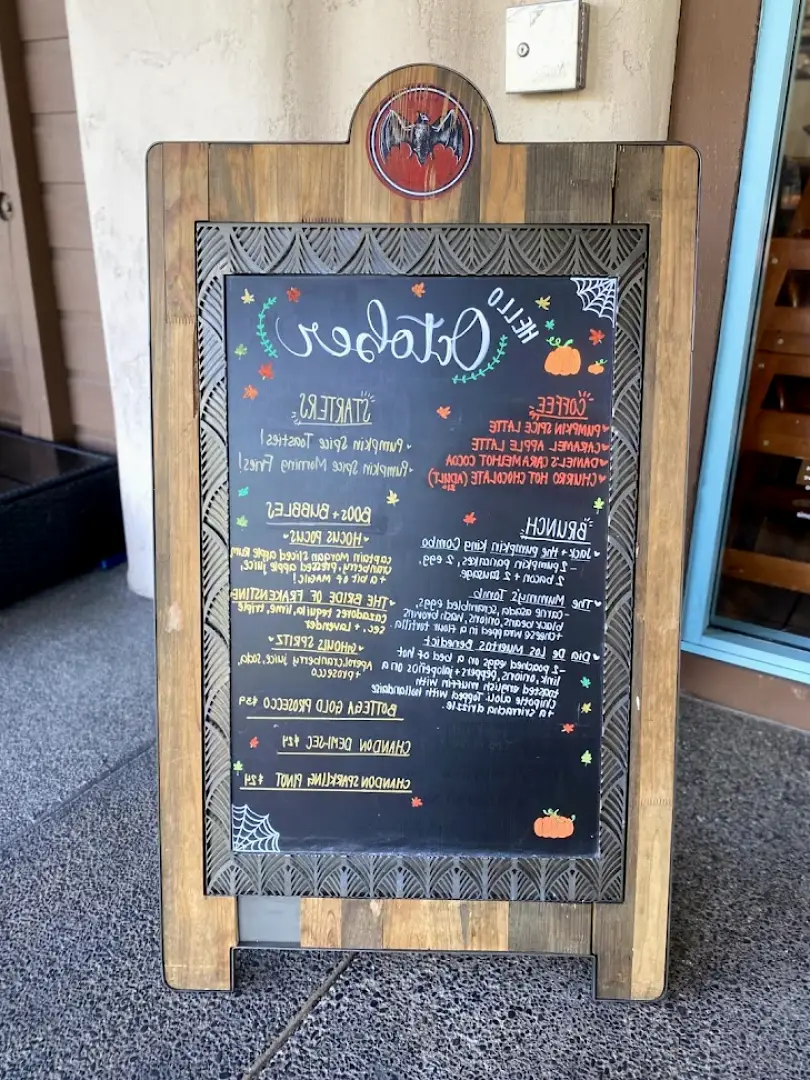 HELLO
October
COFFEE
PUMPKIN SPICE LATTE
CARAMEL APPLE LATTE
DANIEL'S CARAMEL HOT COCOA
CHURRO HOT CHOCOLATE (ADULT)
$10
BRUNCH
Jack + the Pumpkin King Combo
-2 pumpkin pancakes, 2 egg,
2 bacon + 2 sausage.
The Mummy's Tomb
-carne asada, scrambled eggs,
black beans, onions, hash browns
+ cheese wrapped in a flour tortilla
Dia De Los Muertos Benedict
-2 poached eggs on a bed of hot
link, onions, peppers + jalapeños on a
toasted english muffin with
chipotle aioli. Topped with hollandaise
+ a sriracha drizzle.
STARTERS
Pumpkin Spice Toasties!
Pumpkin Spice Morning Fries!
BOOs + BUBBLES
HOCUS POCUS
captain morgan sliced apple rum
cranberry, pressed apple juice,
+ a bit of MAGIC!
THE BRIDE OF FRANKENSTINE
cazadores tequila, lime, triple
sec, + lavender
GHOULS SPRITZ
Aperol, cranberry juice, soda,
+ prosecco
BOTTEGA GOLD PROSECCO $39
CHANDON DEMI-SEC $24
CHANDON SPARKLING PINOT $24